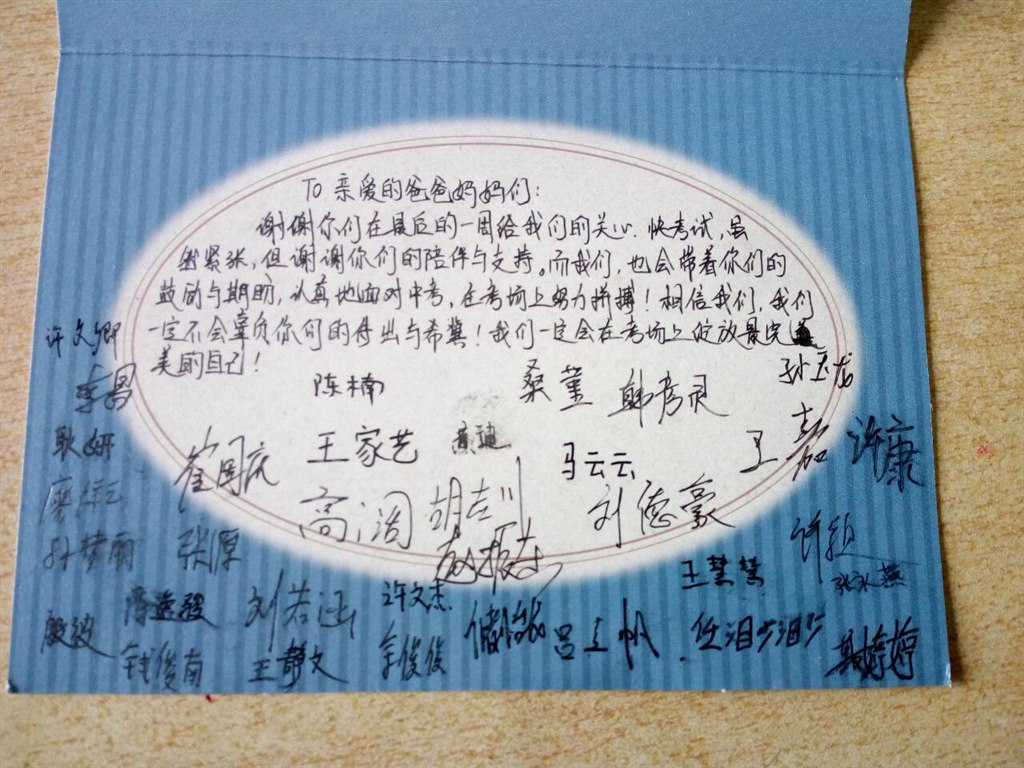 To 亲爱的爸爸妈妈们：
谢谢你们在最后的一周给我们的关心.快考试,虽
然紧张,但谢谢你们的陪伴与支持。而我们,也会带着你们的
鼓励与期盼,认真地面对中考,在考场上努力拼搏！相信我们,我们
一定不会辜负你们的付出与希冀！我们一定会在考场上绽放最完
美的自己！
许文卿
陈楠
桑董
孙玉龙
耿妍
崔国庆
王家艺
马云云
王嘉
许康
高阔
胡志川
刘德豪
孙梦雨
张源
赵振杰
许颖
王慧慧
殷波
刘若涵
许文杰
吕立帆
钱俊南
王静文
李俊俊